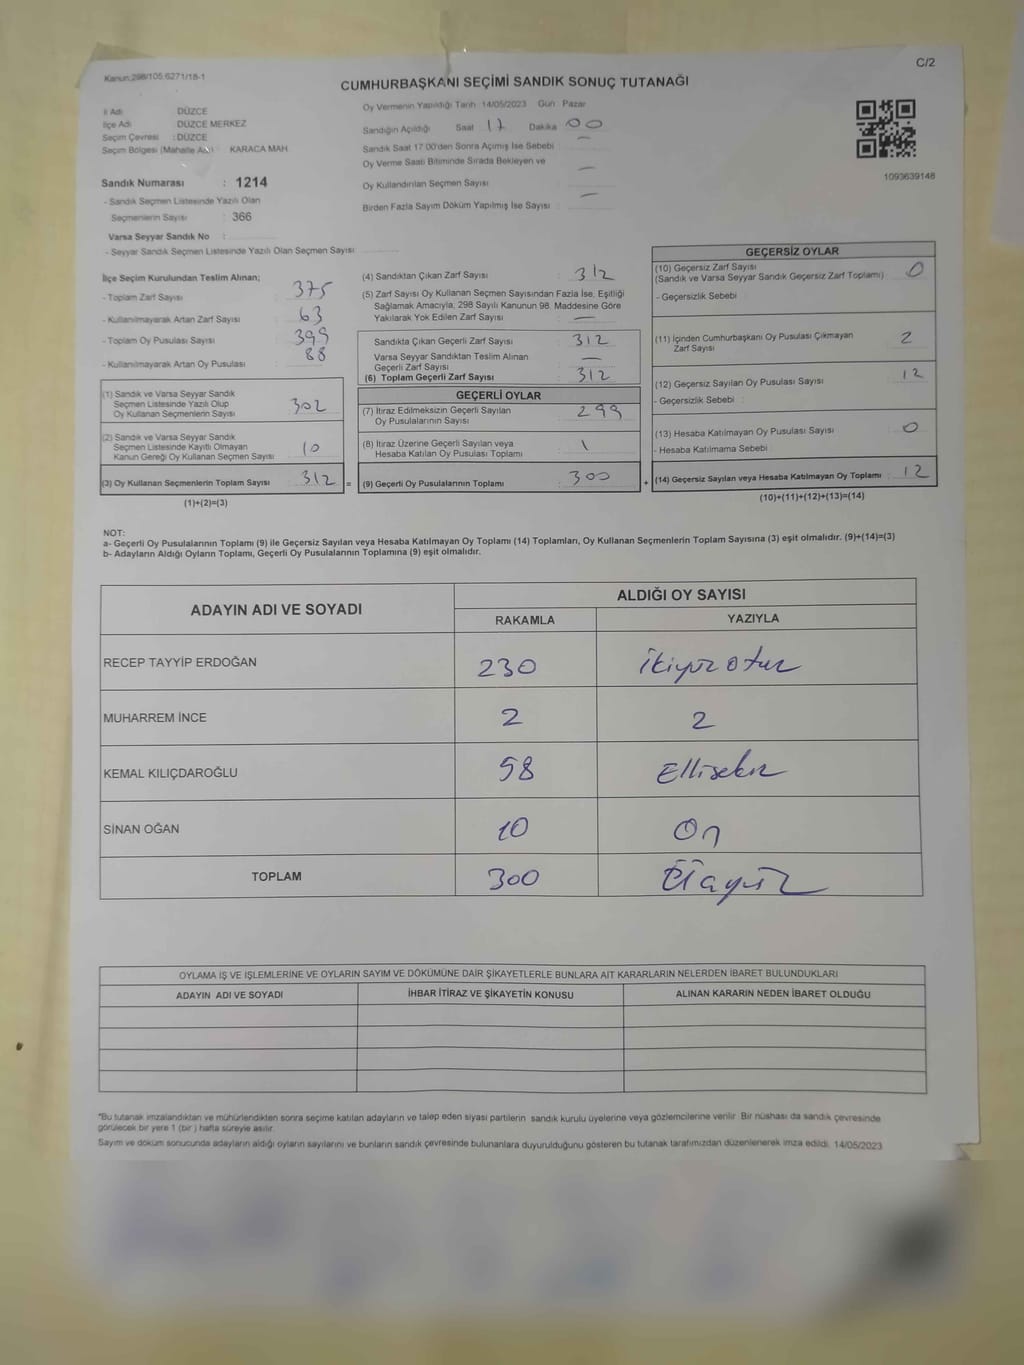 Kanun:298/105:6271/18-1
C/2
CUMHURBAŞKANI SEÇİMİ SANDIK SONUÇ TUTANAĞI
İl Adı : DÜZCE
İlçe Adı : DÜZCE MERKEZ
Seçim Çevresi : DÜZCE
Seçim Bölgesi (Mahalle Adı) : KARACA MAH.
Sandık Numarası : 1214
- Sandık Seçmen Listesinde Yazılı Olan
Seçmenlerin Sayısı : 366
Varsa Seyyar Sandık No :
- Seyyar Sandık Seçmen Listesinde Yazılı Olan Seçmen Sayısı
Oy Vermenin Yapıldığı Tarih 14/05/2023 Gün Pazar
Sandığın Açıldığı Saat 17 Dakika 00
Sandık Saat 17.00'den Sonra Açımış İse Sebebi : —
Oy Verme Saati Bitiminde Sırada Bekleyen ve
Oy Kullandırılan Seçmen Sayısı : —
Birden Fazla Sayım Döküm Yapılmış İse Sayısı : —
1093639148
İlçe Seçim Kurulundan Teslim Alınan;
- Toplam Zarf Sayısı : 375
- Kullanılmayarak Artan Zarf Sayısı : 63
- Toplam Oy Pusulası Sayısı : 399
- Kullanılmayarak Artan Oy Pusulası : 88
(1) Sandık ve Varsa Seyyar Sandık
Seçmen Listesinde Yazılı Olup
Oy Kullanan Seçmenlerin Sayısı : 302
(2) Sandık ve Varsa Seyyar Sandık
Seçmen Listesinde Kayıtlı Olmayan
Kanun Gereği Oy Kullanan Seçmen Sayısı : 10
(3) Oy Kullanan Seçmenlerin Toplam Sayısı : 312 =
(1)+(2)=(3)
(4) Sandıktan Çıkan Zarf Sayısı : 312
(5) Zarf Sayısı Oy Kullanan Seçmen Sayısından Fazla İse, Eşitliği
Sağlamak Amacıyla, 298 Sayılı Kanunun 98. Maddesine Göre
Yakılarak Yok Edilen Zarf Sayısı : —
Sandıkta Çıkan Geçerli Zarf Sayısı : 312
Varsa Seyyar Sandıktan Teslim Alınan
Geçerli Zarf Sayısı : —
(6) Toplam Geçerli Zarf Sayısı : 312
GEÇERLİ OYLAR
(7) İtiraz Edilmeksizin Geçerli Sayılan
Oy Pusulalarının Sayısı : 299
(8) İtiraz Üzerine Geçerli Sayılan veya
Hesaba Katılan Oy Pusulası Toplamı : 1
(9) Geçerli Oy Pusulalarının Toplamı : 300 +
GEÇERSİZ OYLAR
(10) Geçersiz Zarf Sayısı
(Sandık ve Varsa Seyyar Sandık Geçersiz Zarf Toplamı) : 0
- Geçersizlik Sebebi :
(11) İçinden Cumhurbaşkanı Oy Pusulası Çıkmayan
Zarf Sayısı : 2
(12) Geçersiz Sayılan Oy Pusulası Sayısı : 12
- Geçersizlik Sebebi :
(13) Hesaba Katılmayan Oy Pusulası Sayısı : 0
- Hesaba Katılmama Sebebi :
(14) Geçersiz Sayılan veya Hesaba Katılmayan Oy Toplamı : 12
(10)+(11)+(12)+(13)=(14)
NOT:
a- Geçerli Oy Pusulalarının Toplamı (9) ile Geçersiz Sayılan veya Hesaba Katılmayan Oy Toplamı (14) Toplamları, Oy Kullanan Seçmenlerin Toplam Sayısına (3) eşit olmalıdır. (9)+(14)=(3)
b- Adayların Aldığı Oyların Toplamı, Geçerli Oy Pusulalarının Toplamına (9) eşit olmalıdır.
ADAYIN ADI VE SOYADI ALDIĞI OY SAYISI
RAKAMLA YAZIYLA
RECEP TAYYİP ERDOĞAN 230 ikiyüz otuz
MUHARREM İNCE 2 2
KEMAL KILIÇDAROĞLU 58 Ellisekiz
SİNAN OĞAN 10 On
TOPLAM 300 Üçyüz
OYLAMA İŞ VE İŞLEMLERİNE VE OYLARIN SAYIM VE DÖKÜMÜNE DAİR ŞİKAYETLERLE BUNLARA AİT KARARLARIN NELERDEN İBARET BULUNDUKLARI
ADAYIN ADI VE SOYADI İHBAR İTİRAZ VE ŞİKAYETİN KONUSU ALINAN KARARIN NEDEN İBARET OLDUĞU
*Bu tutanak imzalandıktan ve mühürlendikten sonra seçime katılan adayların ve talep eden siyasi partilerin sandık kurulu üyelerine veya gözlemcilerine verilir. Bir nüshası da sandık çevresinde
görülecek bir yere 1 (bir ) hafta süreyle asılır.
Sayım ve döküm sonucunda adayların aldığı oyların sayılarını ve bunların sandık çevresinde bulunanlara duyurulduğunu gösteren bu tutanak tarafımızdan düzenlenerek imza edildi. 14/05/2023